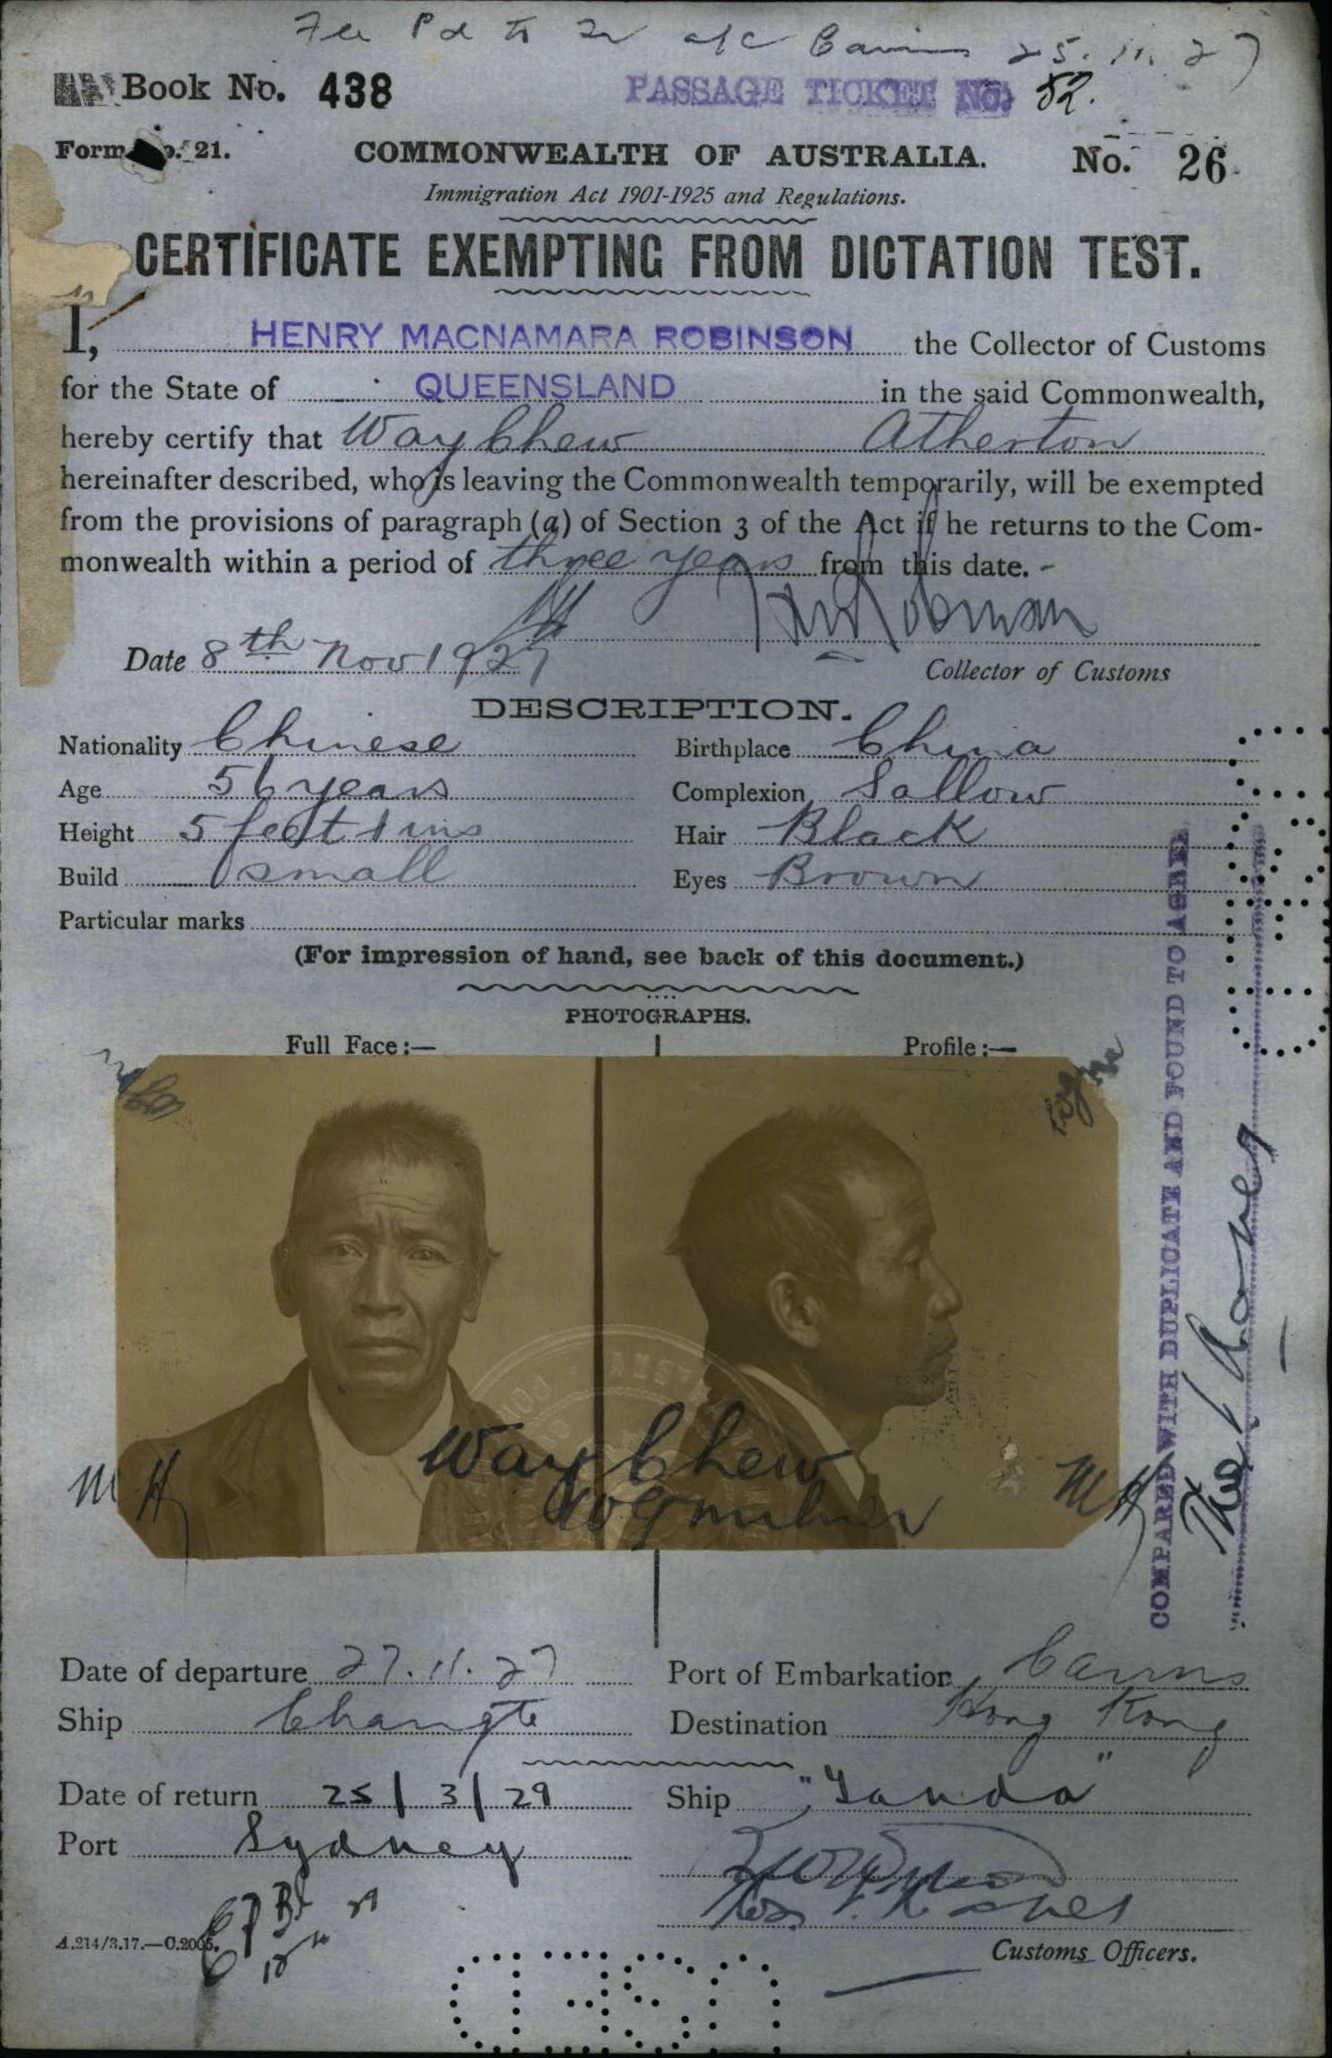 Fee Pd to a/c Cairns 25.11.27
Book No. 438
PASSAGE TICKET No. 52.
Form No. 21.
COMMONWEALTH OF AUSTRALIA.
No. 26
Immigration Act 1901-1925 and Regulations.
CERTIFICATE EXEMPTING FROM DICTATION TEST.
I, HENRY MACNAMARA ROBINSON the Collector of Customs
for the State of QUEENSLAND in the said Commonwealth,
hereby certify that Way Chew Atherton
hereinafter described, who is leaving the Commonwealth temporarily, will be exempted
from the provisions of paragraph (a) of Section 3 of the Act if he returns to the Com-
monwealth within a period of three years from this date.
HMRobinson
Date 8th Nov 1927
Collector of Customs
DESCRIPTION.
Nationality Chinese Birthplace China
Age 56 years Complexion Sallow
Height 5 feet 1 ins Hair Black
Build Small Eyes Brown
Particular marks
(For impression of hand, see back of this document.)
PHOTOGRAPHS.
Full Face:— Profile:—
Way Chew
M H
M H
COMPARED WITH DUPLICATE AND FOUND TO AGREE
Date of departure 27.11.27 Port of Embarkation Cairns
Ship Changte Destination Hong Kong
Date of return 25/3/29 Ship "Tanda"
Port Sydney
Customs Officers.
A.214/3.17.—C.2005.
USED